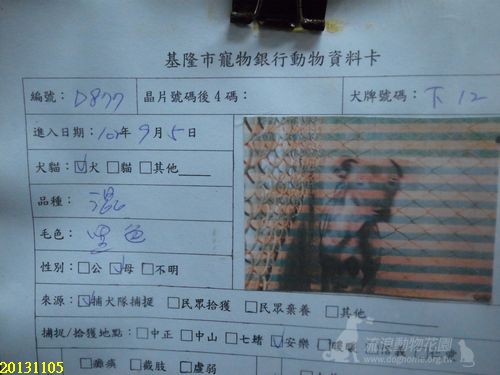 基隆市寵物銀行動物資料卡
編號：D877 晶片號碼後4碼： 犬牌號碼：下12
進入日期：102年9月5日
犬貓：☑犬 □貓 □其他
品種：混
毛色：黑色
性別：□公 ☑母 □不明
來源：☑捕犬隊捕捉 □民眾拾獲 □民眾棄養 □其他
捕捉/拾獲地點：□中正 □中山 □七堵 ☑安樂 □暖暖
□癱瘓 □截肢 □虛弱
流浪動物花園
www.doghome.org.tw
20131105